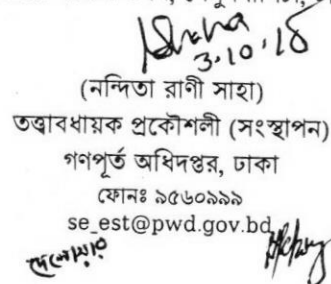 3.10.18
(নন্দিতা রাণী সাহা)
তত্ত্বাবধায়ক প্রকৌশলী (সংস্থাপন)
গণপূর্ত অধিদপ্তর, ঢাকা
ফোনঃ ৯৫৬০৯৯৯
se_est@pwd.gov.bd
দেলোয়ার